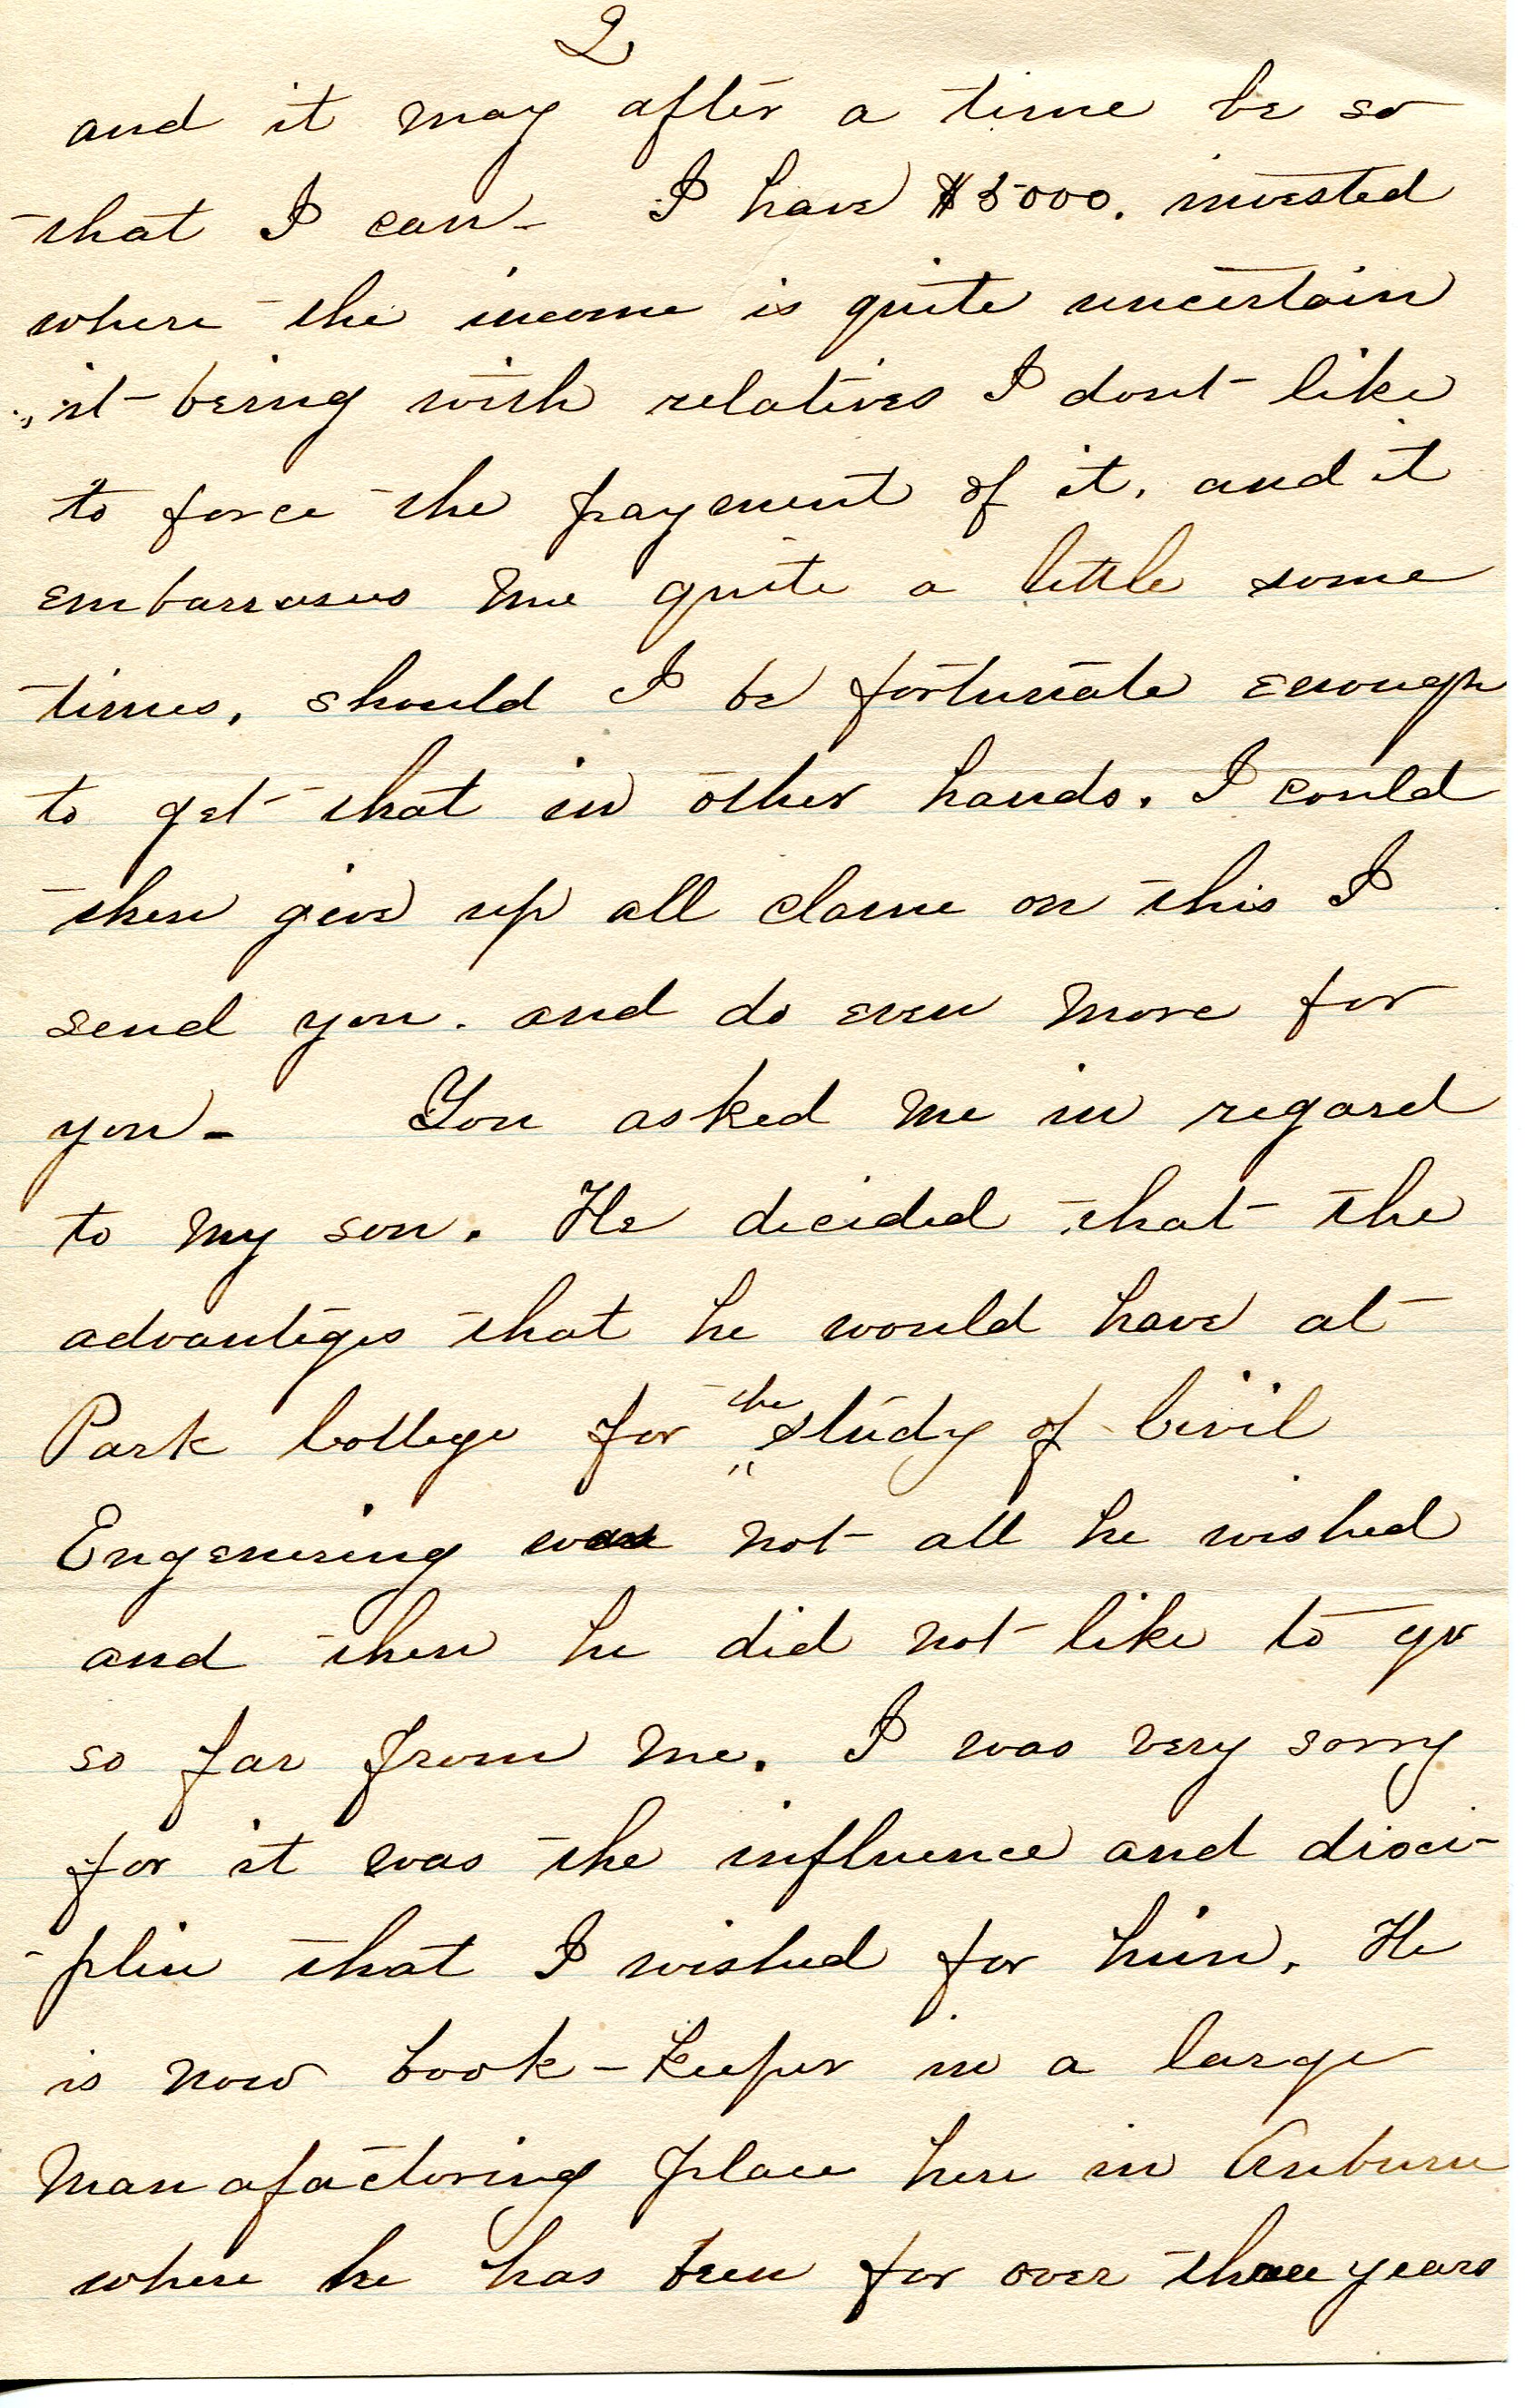 2
and it may after a time be so
that I can - I have $5000. invested
where the income is quite uncertain
it being with relatives I dont like
to force the payment of it, and it
embarrases me quite a little some
times, should I be fortunate enough
to get that in other hands. I could
then give up all clame on this I
send you. and do even more for
you - You asked me in regard
to my son. He decided that the
advanteges that he would have at
Park College for the study of Civil
Engenering was not all he wished
and then he did not like to go
so far from me. I was very sorry
for it was the influence and disci-
-plin that I wished for him. He
is now book-keeper in a large
Manafactoring place here in Auburn
where he has been for over three years